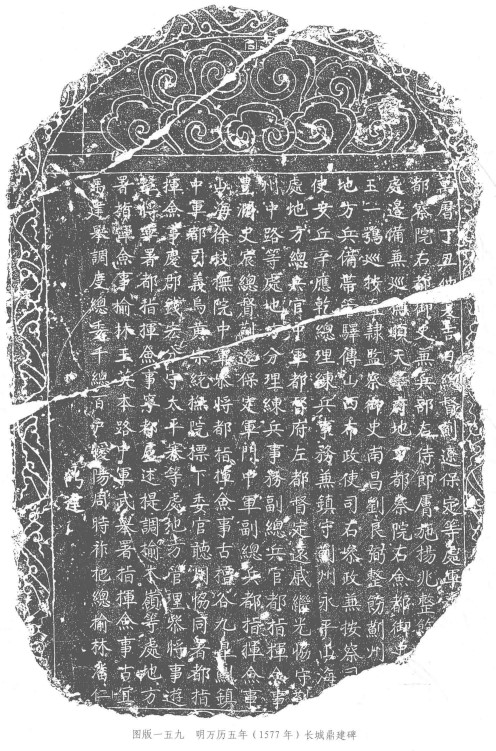 萬曆丁丑夏吉日總督薊遼保定等處軍
都察院右都御史兼兵部左侍郎膚施楊兆整飭
處邊備兼巡撫順天等府地方都察院右僉都御史
王一鶚巡按直隸監察御史南昌劉良弼整飭薊州
地方兵備帶管驛傳山西布政使司右參政兼按察司
使安丘辛應乾總理練兵事務兼鎮守薊州永平山海
處地方總兵官中軍都督府左都督定遠戚繼光協守薊
州中路等處地方分理練兵事務副總兵官都指揮僉事
豐潤史宸總督薊遼保定軍門中軍副總兵都指揮僉事
山海徐枝撫院中軍參將都指揮僉事古檀谷九皋薊鎮
中軍都司義烏黃宗統撫院標下委官聽用恊同署都指
揮僉事慶都錢岩分守太平寨等處地方管理參將事遊
擊將軍署都指揮僉事寧都盧述提調榆木嶺等處地方
署指揮僉事榆林王英本路中軍武舉署指揮僉事古
馮建舉調度總委千總百户陽周時祚把總榆林仁
鼎建
图版一五九 明万历五年(1577年)长城鼎建碑